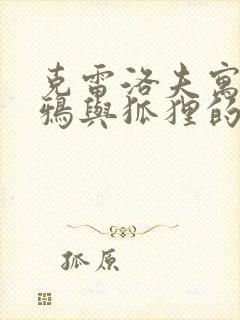 克雷洛夫寓
鴉與狐狸的
狐原